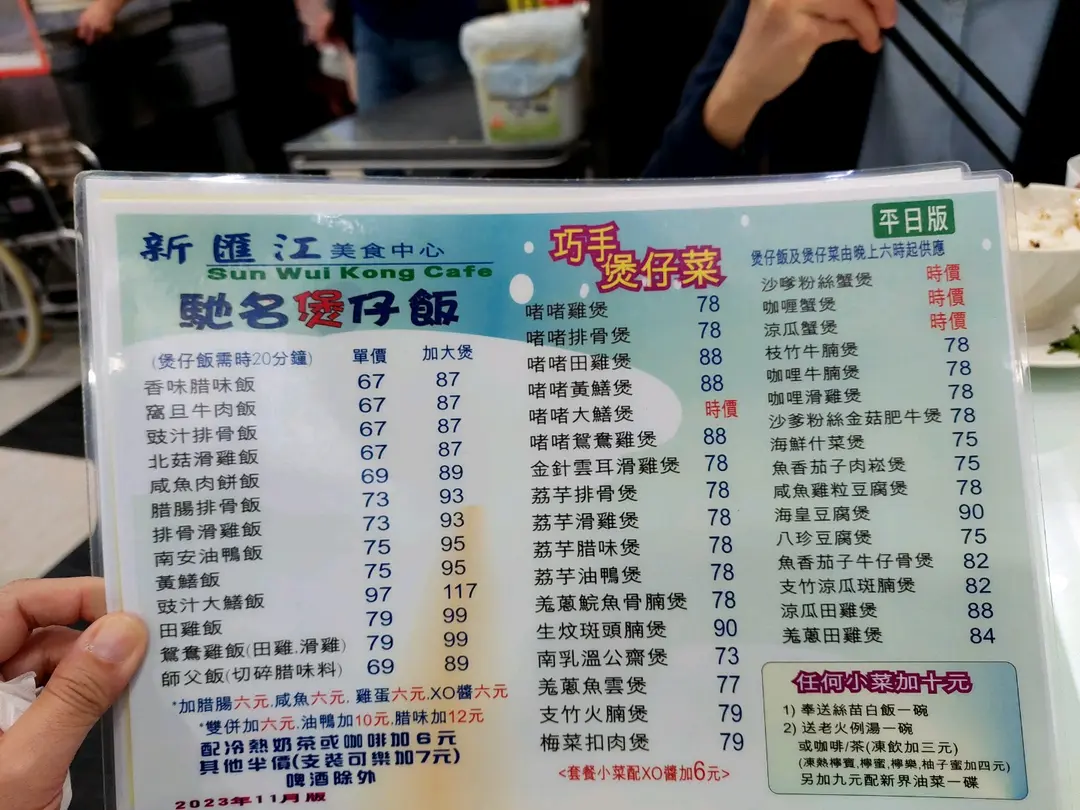 新匯江美食中心
Sun Wui Kong Cafe
馳名煲仔飯
(煲仔飯需時20分鐘) 單價 加大煲
香味腊味飯 67 87
窩旦牛肉飯 67 87
豉汁排骨飯 67 87
北菇滑雞飯 67 87
咸魚肉餅飯 69 89
腊腸排骨飯 73 93
排骨滑雞飯 73 93
南安油鴨飯 75 95
黃鱔飯 75 95
豉汁大鱔飯 97 117
田雞飯 79 99
鴛鴦雞飯(田雞.滑雞) 79 99
師父飯(切碎腊味料) 69 89
*加腊腸六元,咸魚六元, 雞蛋六元,XO醬六元
*雙併加六元,油鴨加10元,腊味加12元
配冷熱奶茶或咖啡加6元
其他半價(支裝可樂加7元)
啤酒除外
2023年11月版
巧手煲仔菜
啫啫雞煲 78
啫啫排骨煲 78
啫啫田雞煲 88
啫啫黃鱔煲 88
啫啫大鱔煲 時價
啫啫鴛鴦雞煲 88
金針雲耳滑雞煲 78
荔芋排骨煲 78
荔芋滑雞煲 78
荔芋腊味煲 78
荔芋油鴨煲 78
羗蔥鯇魚骨腩煲 78
生炆斑頭腩煲 90
南乳溫公齋煲 73
羗蔥魚雲煲 77
支竹火腩煲 79
梅菜扣肉煲 79
<套餐小菜配XO醬加6元>
平日版
煲仔飯及煲仔菜由晚上六時起供應
沙爹粉絲蟹煲 時價
咖喱蟹煲 時價
涼瓜蟹煲 時價
枝竹牛腩煲 78
咖哩牛腩煲 78
咖哩滑雞煲 78
沙爹粉絲金菇肥牛煲 78
海鮮什菜煲 75
魚香茄子肉崧煲 75
咸魚雞粒豆腐煲 78
海皇豆腐煲 90
八珍豆腐煲 75
魚香茄子牛仔骨煲 82
支竹涼瓜斑腩煲 82
涼瓜田雞煲 88
羗蔥田雞煲 84
任何小菜加十元
1) 奉送絲苗白飯一碗
2) 送老火例湯一碗
或咖啡/茶(凍飲加三元)
(凍熱檸賓,檸蜜,檸樂,柚子蜜加四元)
另加九元配新界油菜一碟